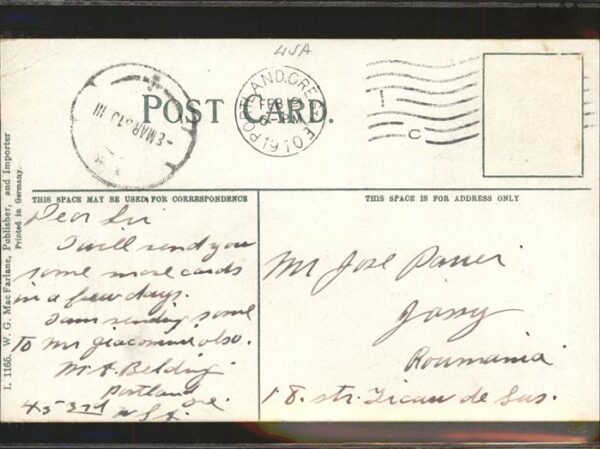 USA
POST CARD.
PORTLAND, ORE.
FEB
6 PM
1910
MAR 10
C
I. 1165. W. G. MacFarlane, Publisher, and Importer
Printed in Germany.
THIS SPACE MAY BE USED FOR CORRESPONDENCE
THIS SPACE IS FOR ADDRESS ONLY
Dear Sir
I will send you
some more cards
in a few days.
I am sending some
To Mr Giacomini also.
M. A. Belding
Portland
Ore.
453
Mr Jose
Jassy
Roumania
18. str. Ticau de Sus.